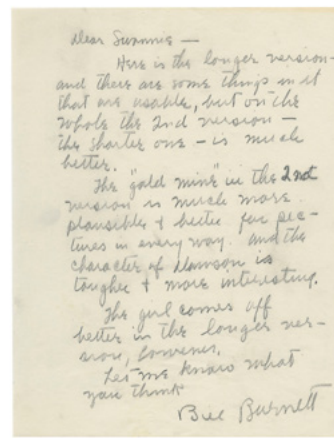 Dear Swannie —
Here is the longer version —
and there are some things in it
that are usable, but on the
whole the 2nd version —
the shorter one — is much
better.
The "gold mine" in the 2nd
version is much more
plausible + better for pic-
tures in every way. and the
character of Dawson is
tougher + more interesting.
The girl comes off
better in the longer ver-
sion,
Let me know what
you think
Bill Burnett